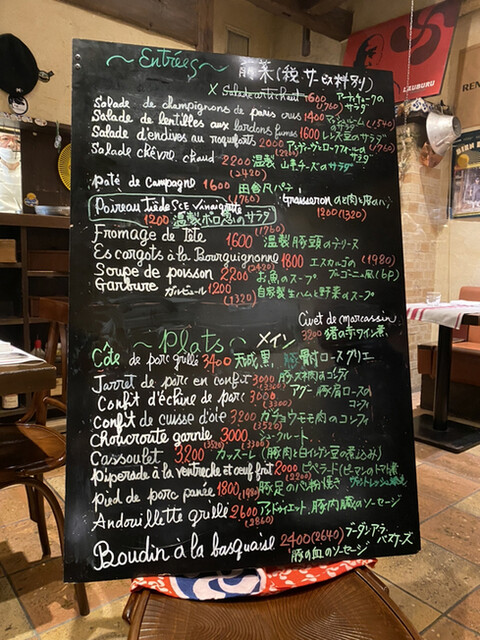 LAUBURU
~Entrées~ 前菜(税サービス料別り)
x Salade artichaut 1600 アーティチョークの
(1760) サラダ
Salade de champignons de paris crus 1400 マッシュルーム
のサラダ (1540)
Salade de lentilles aux lardons fumés 1600 レンズ豆のサラダ
(1760)
Salade d'endives au roquefort 2000 アンディーヴとロックフォールの
(2200) サラダ
Salade chèvre chaud 2200 温製 山羊チーズのサラダ
(2420)
pâté de Campagne 1600 田舎風パテ
(1760)
Poireau tiède SCE Vinaigrette
1200 温製ポロ葱のサラダ
Graisseron のど肉と豚のパテ
1200 (1320)
Fromage de Tête 1600 温製豚頭のテリーヌ
(1760)
Escargots à la Bourguignonne 1800 エスカルゴの (1980)
ブルゴーニュ風(6P)
Soupe de poisson 2200 お魚のスープ
(2420)
Garbure ガルビュール 1200 自家製生ハムと野菜のスープ
(1320)
Civet de marcassin
3200 猪の赤ワイン煮
~Plats~ メイン
Côte de porc grillé 3400 天城黒豚 骨付ロースグリエ
Jarret de porc en confit 3000 豚スネ肉のコンフィ
(3300)
Confit d'échine de porc 3000 アグー豚肩ロースの
(3300) コンフィ
Confit de cuisse d'oie 3200 ガチョウモモ肉のコンフィ
(3520)
Choucroute garnie 3000 シュークルート
(3300)
Cassoulet 3200 カッスーレ(豚肉と白インゲン豆の煮込み)
(3520)
Piperade à la ventrèche et oeuf frit 2000 ピペラード(ピーマンのトマト煮
(2200)
pied de porc pané 1800 (1980) 豚足のパン粉焼き
Andouillette grillé 2600 アンドゥイエット、豚内臓のソーセージ
(2860)
Boudin à la basquaise 2400 (2640) ブーダンアラ
バスケーズ
豚の血のソーセージ